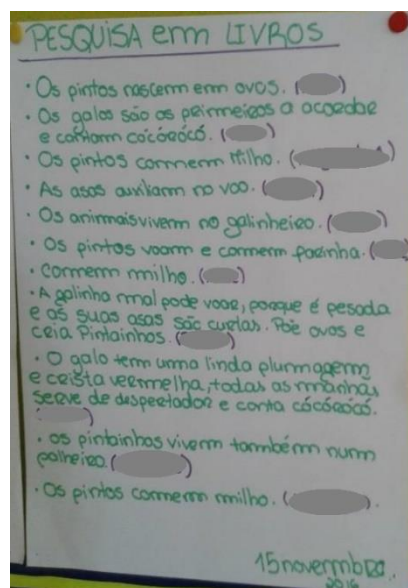 PESQUISA em LIVROS
• Os pintos nascem em ovos. ( )
• Os galos são os primeiros a acordar
e cantam cócórócó. ( )
• Os pintos comem milho. ( )
• As asas auxiliam no voo. ( )
• Os animais vivem no galinheiro. ( )
• Os pintos voam e comem farinha. (
• Comem milho. ( )
• A galinha mal pode voar, porque é pesada
e as suas asas são curtas. Põe ovos e
cria Pintainhos. ( )
• O galo tem uma linda plumagem
e crista vermelha, todas as manhãs
serve de despertador e canta cócórócó.
( )
• os pintainhos vivem também num
palheiro. ( )
• Os pintos comem milho. ( ).
15 novembro
2016